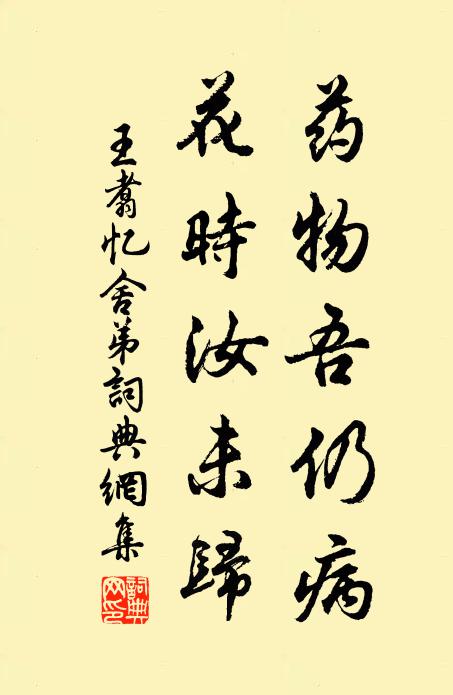 药物吾仍病
花時汝未歸
王翥忆舍弟詞典網集
詞典網印